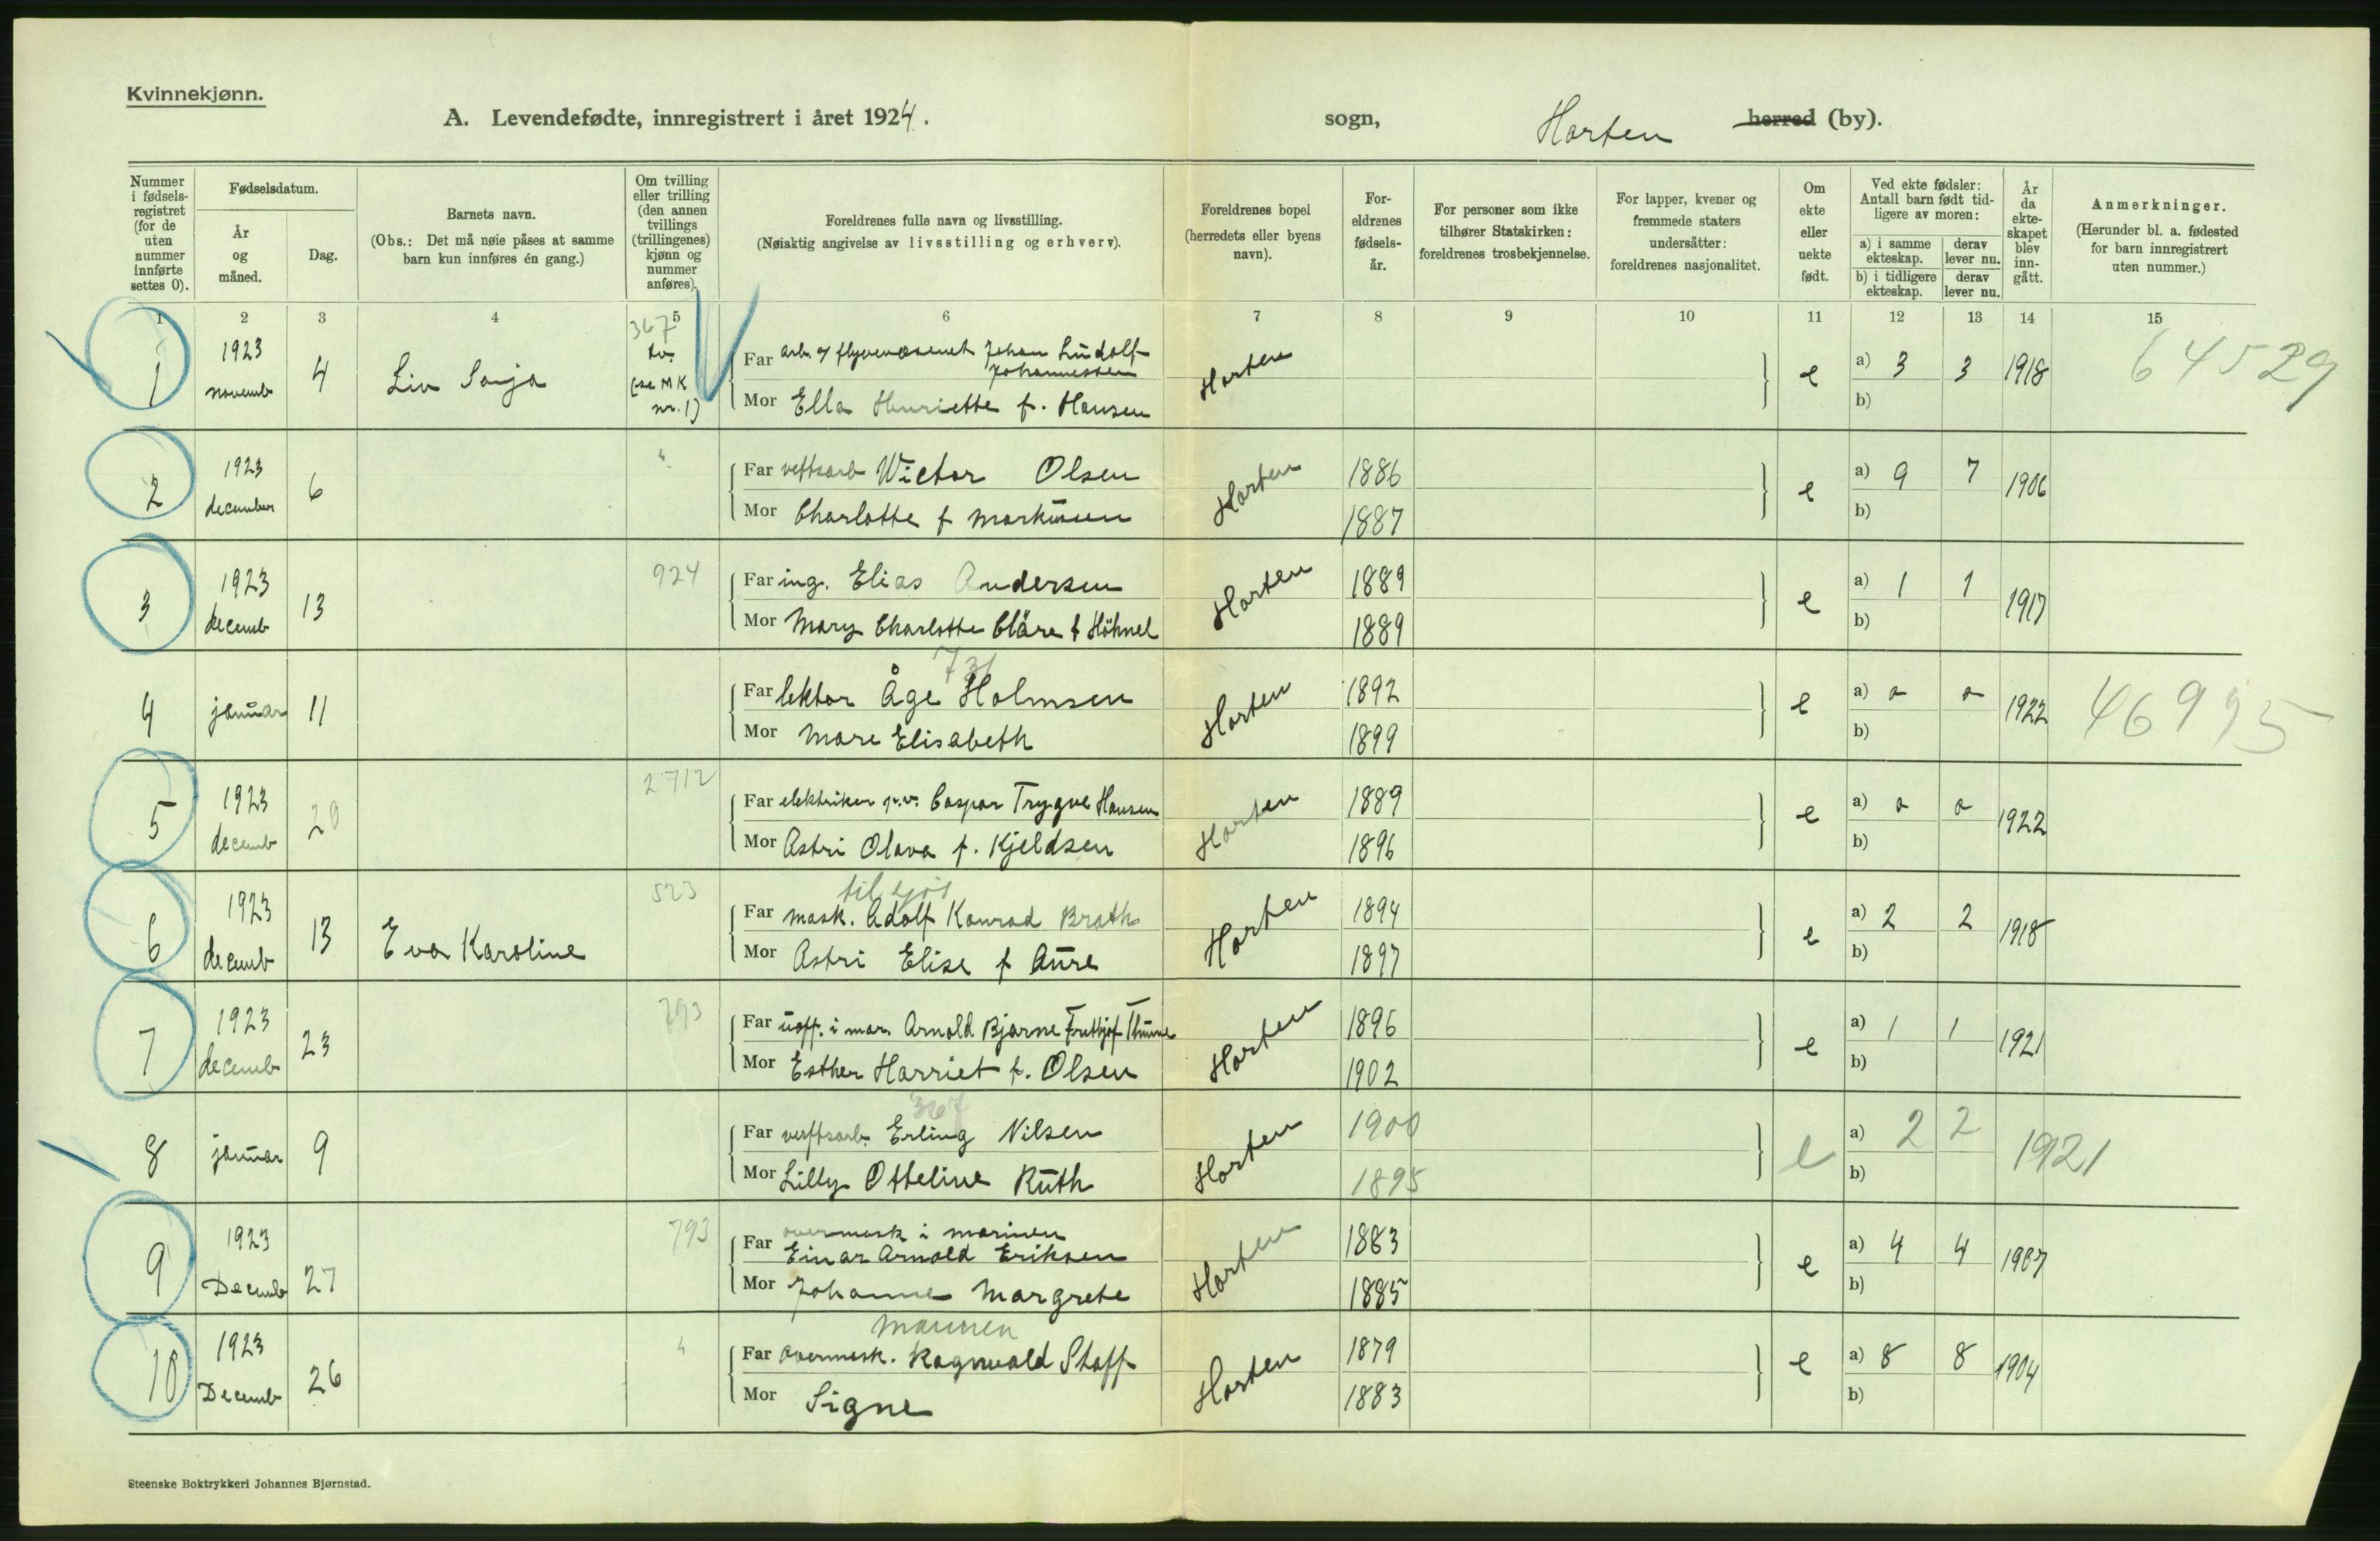 Kvinnekjønn.
A. Levendefødte, innregistrert i året 1924.
sogn, Horten herred (by).
Nummer i fødsels-registret (for de uten nummer innførte settes 0).
Fødselsdatum.
År og måned.
Dag.
Barnets navn.
(Obs.: Det må nøie påses at samme barn kun innføres én gang.)
Om tvilling eller trilling (den annen tvillings (trillingenes) kjønn og nummer anføres).
Foreldrenes fulle navn og livsstilling.
(Nøiaktig angivelse av livsstilling og erhverv).
Foreldrenes bopel (herredets eller byens navn).
For-eldrenes fødsels-år.
For personer som ikke tilhører Statskirken: foreldrenes trosbekjennelse.
For lapper, kvener og fremmede staters undersåtter: foreldrenes nasjonalitet.
Om ekte eller uekte født.
Ved ekte fødsler: Antall barn født tid-ligere av moren:
a) i samme ekteskap.
derav lever nu.
b) i tidligere ekteskap.
derav lever nu.
År da ekte-skapet blev inn-gått.
Anmerkninger.
(Herunder bl. a. fødested for barn innregistrert uten nummer.)
1 2 3 4 5 6 7 8 9 10 11 12 13 14 15
1 1923 novemb 4 Liv Sonja 367 tv. (se MK nr. 1)
Far arb. v/ flyvevæsenet Johan Ludolf Johannessen
Mor Ella Henriette f. Hansen
Horten e a) 3 3 1918 64529
b)
2 1923 december 6 "
Far veftsarb Wictor Olsen Horten 1886 e a) 9 7 1906
Mor Charlotte f Markusen 1887 b)
3 1923 decemb 13 924
Far ing. Elias Andersen Horten 1889 e a) 1 1 1917
Mor Mary Charlotte Cläre f Höhnel 1889 b)
731
4 januar 11
Far lektor Åge Holmsen Horten 1892 e a) o o 1922 46995
Mor Mare Elisabeth 1899 b)
5 1923 decemb 20 2712
Far elektriker p.v. Caspar Trygve Hansen Horten 1889 e a) o o 1922
Mor Astri Olava f. Kjeldsen 1896 b)
til sjøs
6 1923 decemb 13 Eva Karoline 523
Far mask. Adolf Konrad Brath Horten 1894 e a) 2 2 1918
Mor Astri Elise f Aure 1897 b)
7 1923 decemb 23 793
Far uoff. i mar. Arnold Bjarne Horten 1896 e a) 1 1 1921
Mor Esther Harriet f. Olsen 1902 b)
367
8 januar 9
Far verftsarb. Erling Nilsen Horten 1900 e a) 2 2 1921
Mor Lilly Otteline Ruth 1895 b)
9 1923 Decemb 27 793
Far overmask i marinen
Einar Arnold Eriksen Horten 1883 e a) 4 4 1907
Mor Johanne Margrete 1885 b)
marinen
10 1923 Decemb 26 "
Far overmask. Ragnvald Staff Horten 1879 e a) 8 8 1904
Mor Signe 1883 b)
Steenske Boktrykkeri Johannes Bjørnstad.